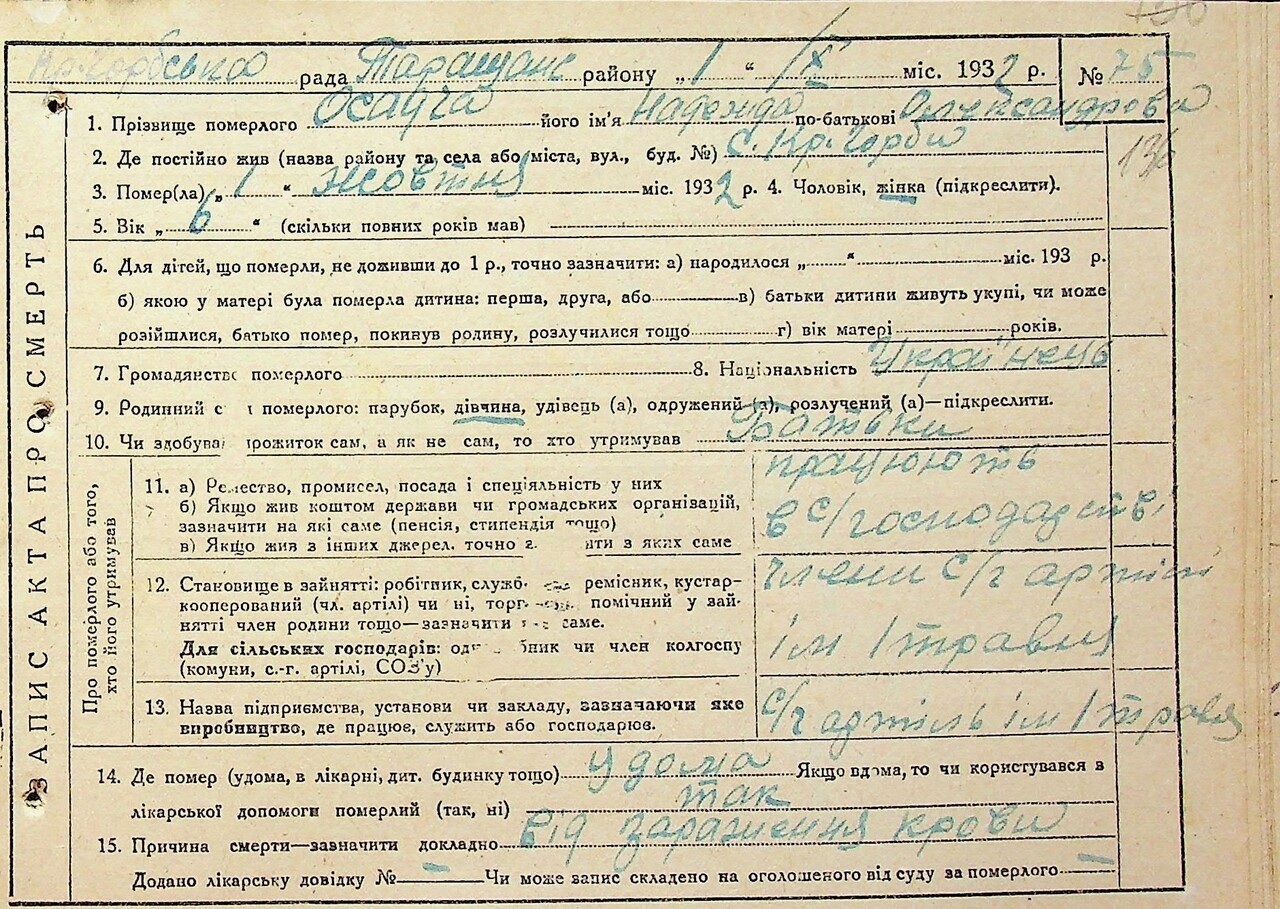 рада Таращанс району „ 1 “ /X міс. 1932 р. № 75
1. Прізвище померлого Осауга його ім'я Надежда по-батькові Олександрова
136
2. Де постійно жив (назва району та села або міста, вул., буд. №) С. Кр. Горби
3. Помер(ла) „ 1 “ жовтня міс. 1932 р. 4. Чоловік, жінка (підкреслити).
5. Вік „ 6 “ (скільки повних років мав)
6. Для дітей, що померли, не доживши до 1 р., точно зазначити: а) народилося „ “ міс. 193 р.
б) якою у матері була померла дитина: перша, друга, або в) батьки дитини живуть укупі, чи може
розійшлися, батько помер, покинув родину, розлучилися тощо г) вік матері років.
7. Громадянство померлого 8. Національність Українець
9. Родинний с померлого: парубок, дівчина, удівець (а), одружений (а), розлучений (а)—підкреслити.
10. Чи здобува прожиток сам, а як не сам, то хто утримував Батьки
11. а) Ремество, промисел, посада і спеціяльність у них
б) Якщо жив коштом держави чи громадських організацій,
зазначити на які саме (пенсія, стипендія тощо)
в) Якщо жив з інших джерел. точно з яких саме
працюють
в с/господарстві
12. Становище в зайнятті: робітник, служб ремісник, кустар-
кооперований (чл. артілі) чи ні, торг помічний у зай-
нятті член родини тощо—зазначити саме.
Для сільських господарів: од бник чи член колгоспу
(комуни, с.-г. артілі, СОЗ'у)
члени с/г артілі
ім 1 травня
13. Назва підприємства, установи чи закладу, зазначаючи яке
виробництво, де працює, служить або господарює.
с/г артіль ім 1 травня
14. Де помер (удома, в лікарні, дит. будинку тощо) удома Якщо вдома, то чи користувався з
лікарської допомоги померлий (так, ні) так
15. Причина смерти—зазначити докладно від зараження крови
Додано лікарську довідку № — Чи може запис складено на оголошеного від суду за померлого —
ЗАПИС АКТА ПРО СМЕРТЬ
Про померлого або того,
хто його утримував